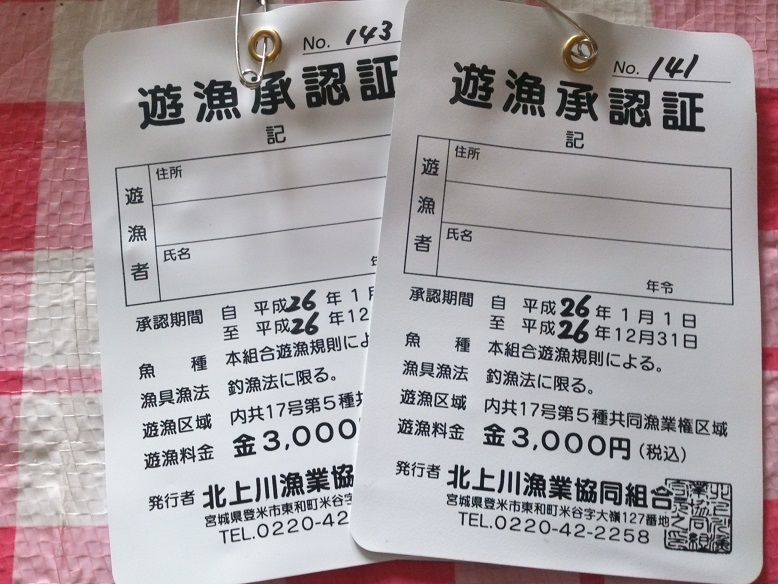 No. 143
遊漁承認証
記
遊漁者
住所
氏名
年
承認期間 自 平成26年1月
至 平成26年12
魚種 本組合遊漁規則によ
漁具漁法 釣漁法に限る。
遊漁区域 内共17号第5種
遊漁料金 金3,000
発行者 北上川漁業協
宮城県登米市東和町米谷字
TEL.0220-42
No. 141
遊漁承認証
記
遊漁者
住所
氏名
年令
承認期間 自 平成26年1月1日
至 平成26年12月31日
魚種 本組合遊漁規則による。
漁具漁法 釣漁法に限る。
遊漁区域 内共17号第5種共同漁業権区域
遊漁料金 金3,000円(税込)
発行者 北上川漁業協同組合
宮城県登米市東和町米谷字大嶺127番地
TEL.0220-42-2258